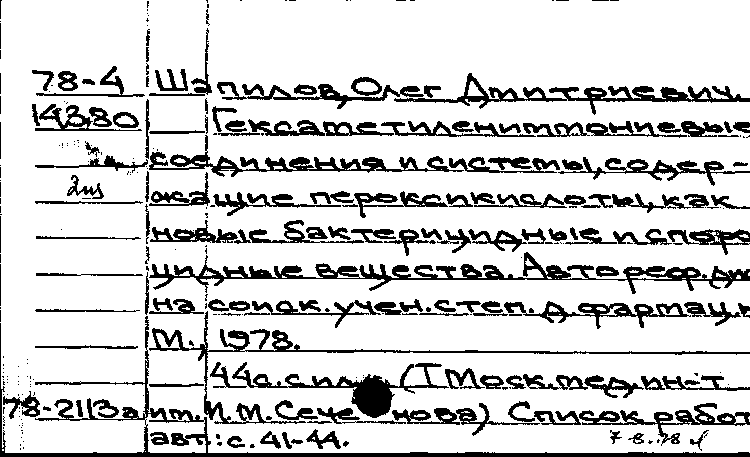 78-4 Шапилов, Олег Дмитриевич.
14380 Гексаметилениммониевые
соединения и системы, содер-
2ил жащие пероксикислоты, как
новые бактерицидные и споро
цидные вещества. Автореф. дис
на соиск. учен. степ. д. фармац. н
М., 1978.
44с. с ил. (I Моск. мед. ин-т
78-2113а им. И.М. Сеченова) Список работ
авт.: с. 41-44. 7-8.78